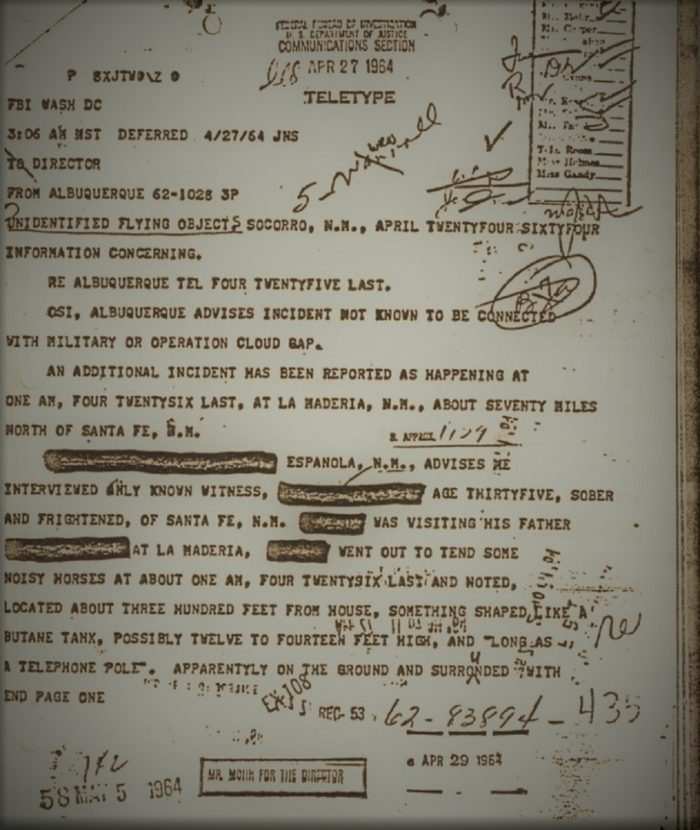 FEDERAL BUREAU OF INVESTIGATION
U. S. DEPARTMENT OF JUSTICE
COMMUNICATIONS SECTION
APR 27 1964
TELETYPE
FBI WASH DC
3:06 AM MST DEFERRED 4/27/64 JNS
TO DIRECTOR
FROM ALBUQUERQUE 62-1028 3P
UNIDENTIFIED FLYING OBJECTS SOCORRO, N.M., APRIL TWENTYFOUR SIXTYFOUR
INFORMATION CONCERNING.
RE ALBUQUERQUE TEL FOUR TWENTYFIVE LAST.
OSI, ALBUQUERQUE ADVISES INCIDENT NOT KNOWN TO BE CONNECTED
WITH MILITARY OR OPERATION CLOUD GAP.
AN ADDITIONAL INCIDENT HAS BEEN REPORTED AS HAPPENING AT
ONE AM, FOUR TWENTYSIX LAST, AT LA MADERIA, N.M., ABOUT SEVENTY MILES
NORTH OF SANTA FE, N.M.
ESPANOLA, N.M., ADVISES HE
INTERVIEWED ONLY KNOWN WITNESS, AGE THIRTYFIVE, SOBER
AND FRIGHTENED, OF SANTA FE, N.M. WAS VISITING HIS FATHER
AT LA MADERIA, WENT OUT TO TEND SOME
NOISY HORSES AT ABOUT ONE AM, FOUR TWENTYSIX LAST AND NOTED,
LOCATED ABOUT THREE HUNDRED FEET FROM HOUSE, SOMETHING SHAPED LIKE A
BUTANE TANK, POSSIBLY TWELVE TO FOURTEEN FEET HIGH, AND "LONG AS
A TELEPHONE POLE". APPARENTLY ON THE GROUND AND SURRONDED WITH
END PAGE ONE
EX-108
REC- 53
62-83894-435
APR 29 1964
MR. MOHR FOR THE DIRECTOR
58 MAY 5 1964
Tele. Room
Miss Holmes
Miss Gandy